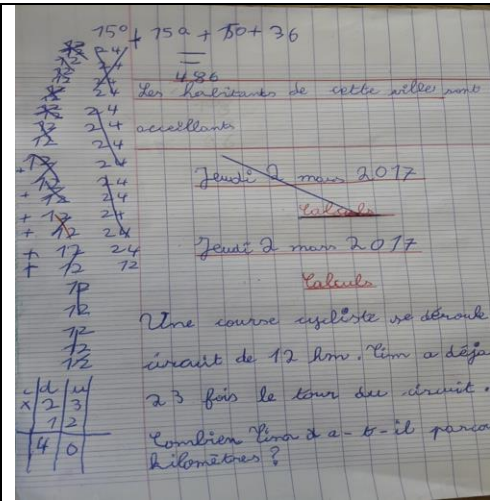 150 + 150 + 150 + 36
486
Les habitants de cette ville sont
acceillants
Jeudi 2 mars 2017
Calculs
Jeudi 2 mars 2017
Calculs
Une course cycliste se déroule
circuit de 12 km. Tim a déjà
23 fois le tour du circuit.
Combien a-t-il
kilomètres ?
12 24
12 24
12 24
12 24
12 24
12 24
12 24
12 24
+ 12 24
+ 12 24
+ 12 24
+ 12 24
+ 12 24
+ 12 12
12
12
12
12
12
c d u
x 2 3
1 2
4 0